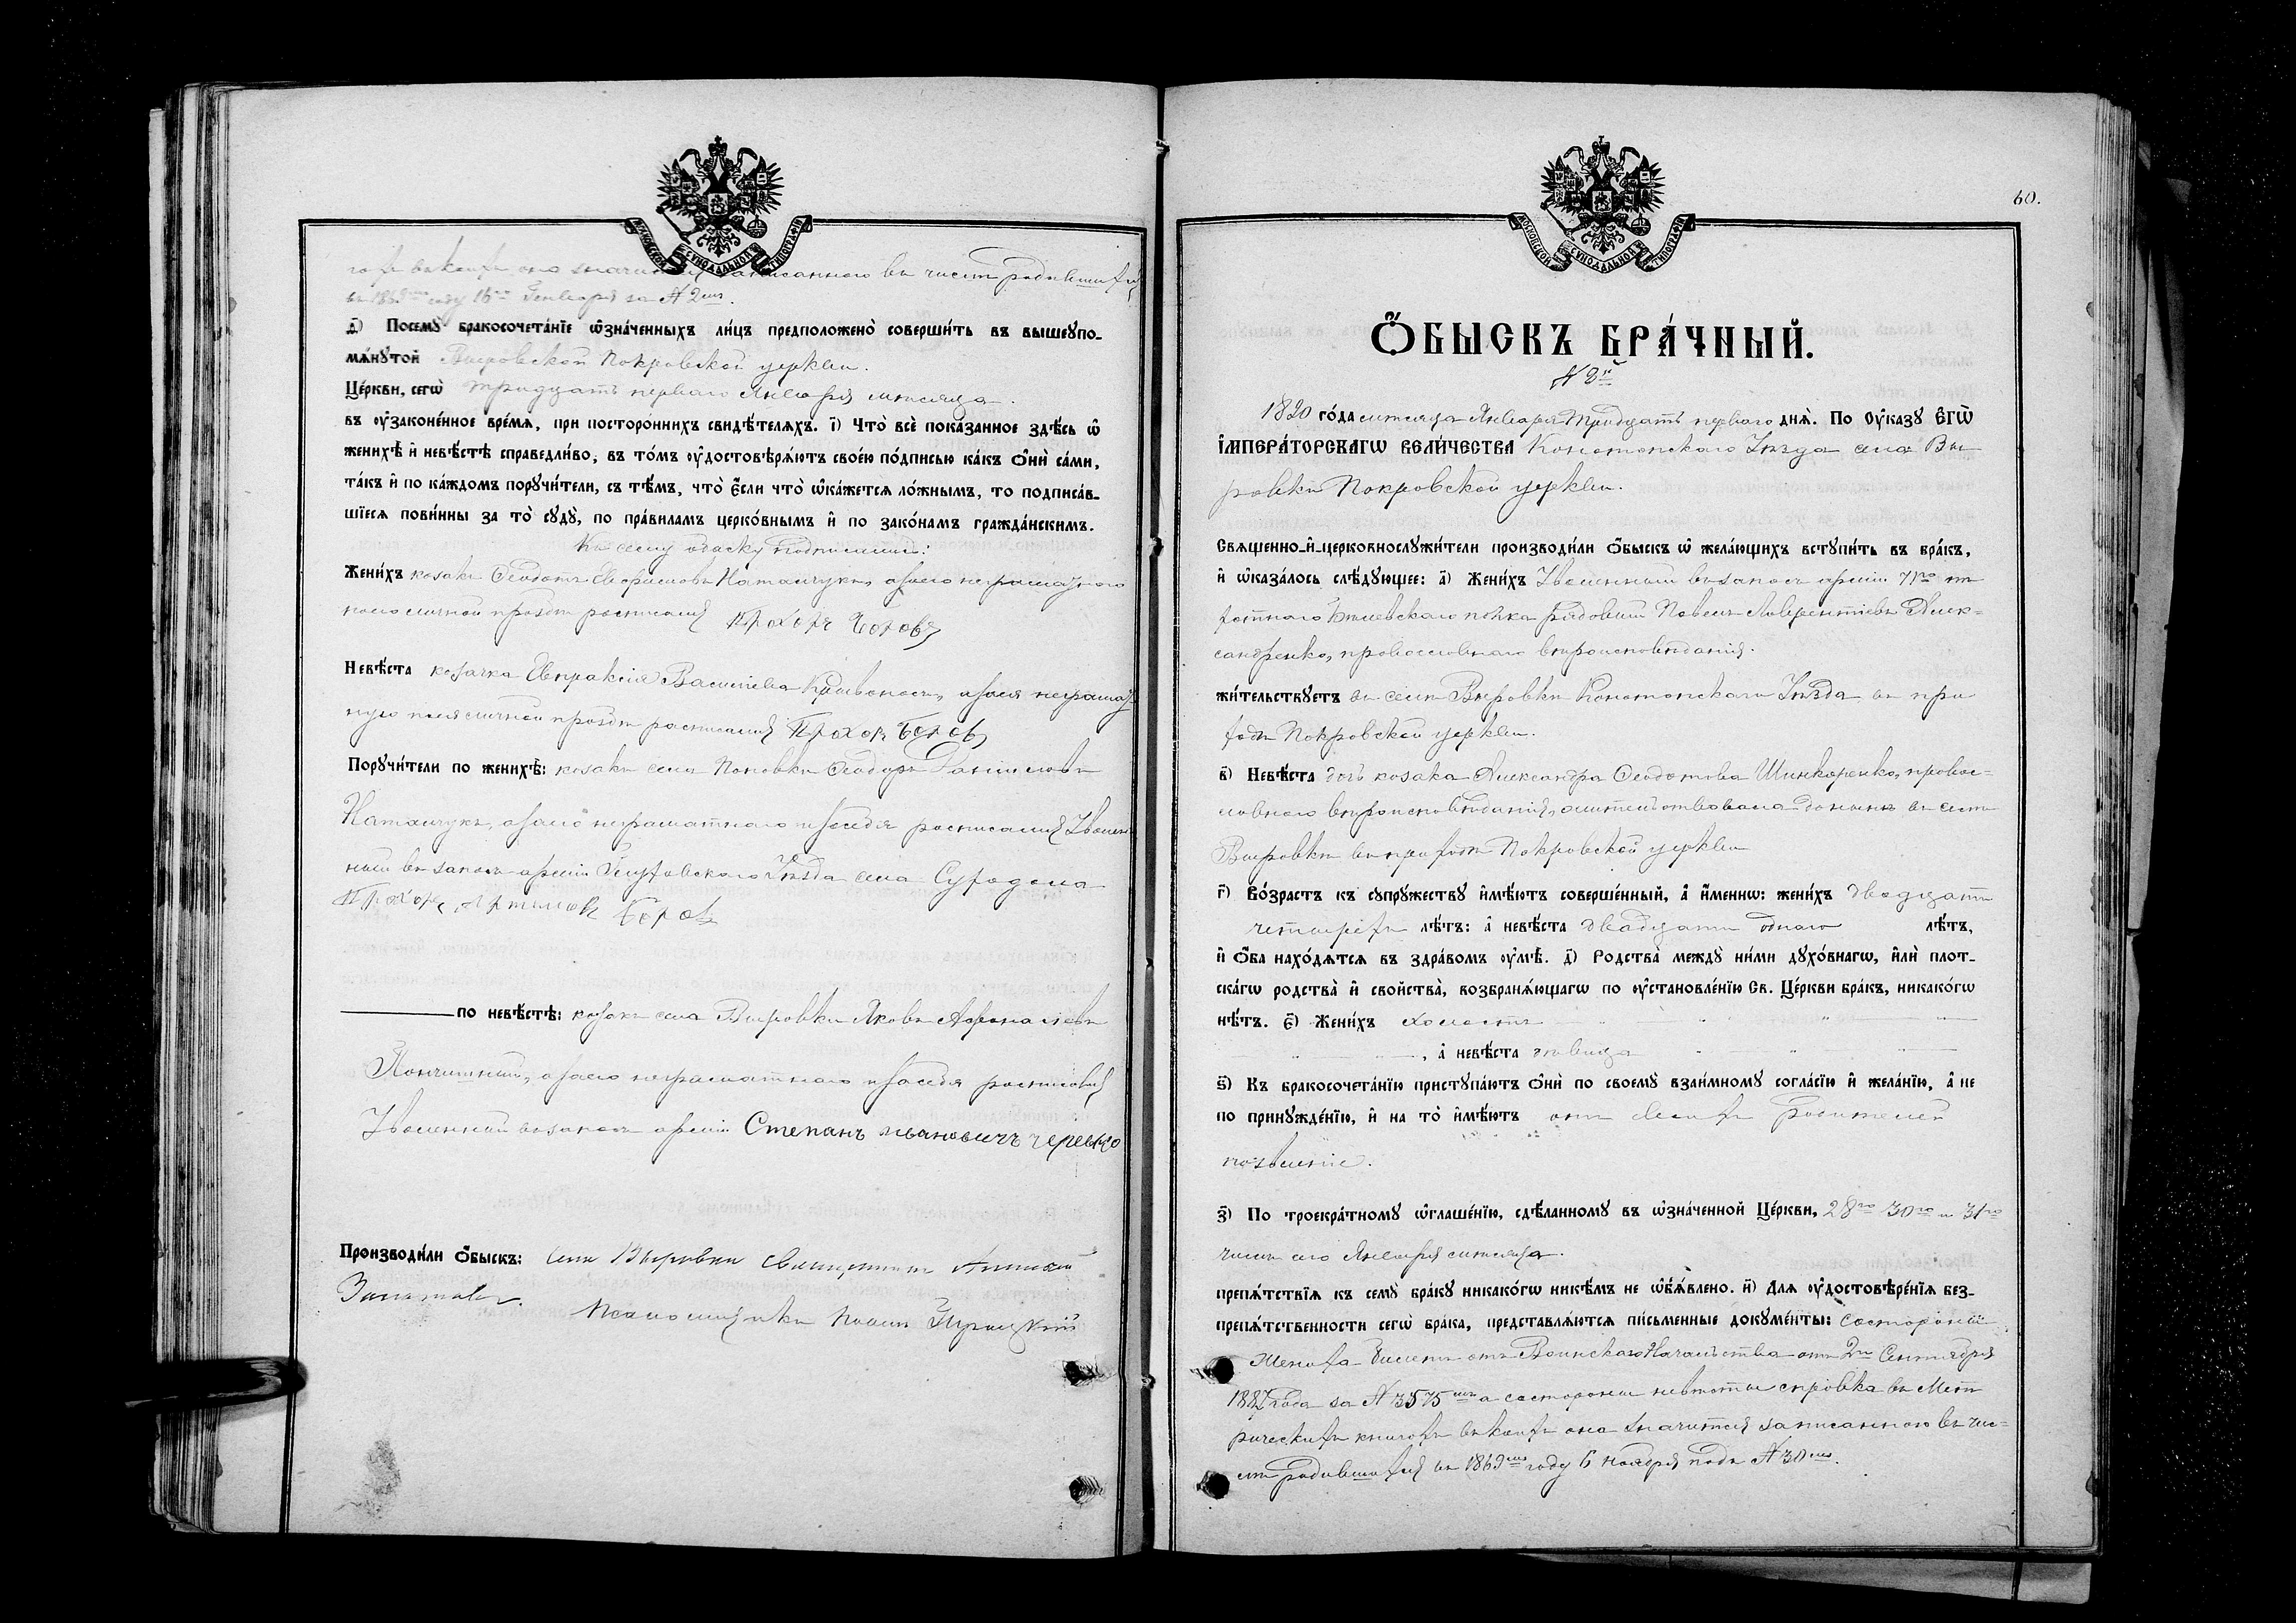 МОСКОВСКОЙ СѴНОДАЛЬНОЙ ТИПОГРАФІИ
записаннаго въ числѣ родившихся
въ 1869мъ году 16го Генваря за № 2мъ.
д҃) Посемꙋ̀ бракосочета́нїе ѡ҆зна́ченныхъ ли́цъ предположено̀ соверши́ть въ вышеꙋпо-
мѧ́нꙋтой Выровской Покровской церкви.
Це́ркви, сегѡ̀ тридцать перваго Января мѣсяца.
въ ᲂу҆законе́нное вре́мѧ, при посторо́ннихъ свидѣ́телѧхъ. і҃) Что̀ всѐ пока́занное здѣ́сь ѡ҆
женихѣ̀ и҆ невѣ́стѣ справедли́во, въ то́мъ ᲂу҆достовѣрѧ́ютъ свое́ю по́дписью ка́къ ѻ҆нѝ са́ми,
та́къ и҆ по ка́ждомъ порꙋчи́тели, съ тѣ́мъ, что̀ є҆́сли что̀ ѡ҆ка́жетсѧ ло́жнымъ, то подписа́в-
шїесѧ пови́нны за то̀ сꙋдꙋ̀, по пра́виламъ церко́внымъ и҆ по зако́намъ гражда́нскимъ.
Къ сему обыску подписались:
Жени́хъ козакъ Ѳеодотъ Наталчукъ, а за него неграмотнаго
по его личной прозбѣ росписался Прохоръ Боровъ
Невѣ́ста козачка Евпраксія Василіева а за нея неграмот-
ную по ея личной прозбѣ росписался Прохоръ Боровъ
Порꙋчи́тели по женихѣ̀: козакъ села Поповки Ѳеодоръ Даниловъ
Наталчукъ, а за него неграмотнаго и за себя росписался Уволен-
ный въ запасъ арміи Глуховскаго Уѣзда села Суходола
Прохоръ Артемовъ Боровъ
по невѣ́стѣ: козакъ села Выровки Яковъ
а за него неграмотнаго и за себя росписовался
Уволенный въ запасъ арміи Степанъ Ивановичъ Черевко
Производи́ли ѻ҆́быскъ: села Выровки священникъ
Псаломщикъ
60.
МОСКОВСКОЙ СѴНОДАЛЬНОЙ ТИПОГРАФІИ
Ѻ҆́БЫСКЪ БРА́ЧНЫЙ.
№ 8й
1890 го́да мѣсяца Января тридцать перваго днѧ̀. По Оу҆́казꙋ Е҆ГѠ̀
І҆МПЕРА́ТОРСКАГѠ ВЕЛИ́ЧЕСТВА Конотопскаго Уѣзда села Вы-
ровки Покровской церкви.
Свѧщенно-и҆-церковнослꙋжи́тели производи́ли ѻ҆́быскъ ѡ҆ жела́ющихъ вступи́ть въ бра́къ,
и҆ ѡ҆каза́лось слѣ́дꙋющее: а҃) Жени́хъ Уволенный въ запасъ арміи 71го пѣ-
хотнаго Бѣлевскаго полка рядовый Павелъ Лаврентіевъ Алек-
сандренко, православнаго вѣроисповѣданія.
жи́тельствꙋетъ въ селѣ Выровки Конотопскаго Уѣзда въ при-
ходѣ Покровской церкви.
в҃) Невѣ́ста дочь козака Александра Ѳеодотова Шинкаренко, правос-
лавнаго вѣроисповѣданія, жительствовала донынѣ въ селѣ
Выровки въ приходѣ Покровской церкви
г҃) Во́зрастъ къ сꙋпрꙋжествꙋ и҆мѣ́ютъ соверше́нный, а҆ и҆́менно: жени́хъ двадцати
четырехъ лѣ́тъ: а҆ невѣ́ста двадцати одного лѣ́тъ,
и҆ ѻ҆́ба нахо́дѧтсѧ въ здра́вомъ ᲂу҆мѣ̀. д҃) Родства̀ междꙋ̀ ни́ми дꙋхо́внагѡ, и҆лѝ плот-
ска́гѡ родства̀ и҆ свойства̀, возбранѧ́ющагѡ по ᲂу҆становле́нїю Св. Це́ркви бра́къ, никако́гѡ
нѣ́тъ. є҃) Жени́хъ холостъ
, а҆ невѣ́ста дѣвица
ѕ҃) Къ бракосочета́нїю приступа́ютъ ѻ҆нѝ по своемꙋ̀ взаи́мномꙋ согла́сїю и҆ жела́нїю, а҆ не
по принꙋжде́нїю, и҆ на то̀ и҆мѣ́ютъ отъ своихъ родителей
позволеніе.
з҃) По троекра́тномꙋ ѡ҆глаше́нїю, сдѣ́ланномꙋ въ ѡ҆зна́ченной Це́ркви, 28го 30го и 31го
чиселъ сего Января мѣсяца.
препѧ́тствїѧ къ семꙋ̀ бра́кꙋ никако́гѡ никѣ́мъ не ѡ҆б̾ѧ́влено. и҃) Для ᲂу҆достовѣре́нїѧ без-
препѧ́тственности сегѡ̀ бра́ка, представлѧ́ютсѧ пи́сьменные докꙋме́нты: со стороны
Жениха билетъ отъ Воинскаго Начальства отъ 2го Сентября
1887 года за № 3575мъ а со стороны невѣсты справка въ Мет-
рическихъ книгахъ въ коихъ она значится записанною въ чис-
лѣ родившихся въ 1869мъ году 6 ноября подъ № 30мъ.